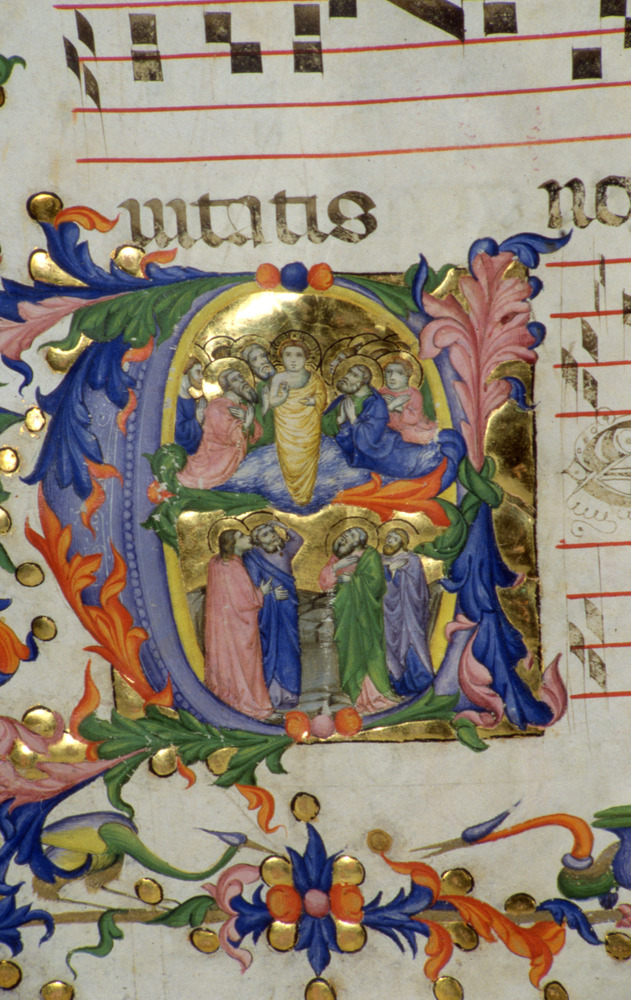 uitatis no
E